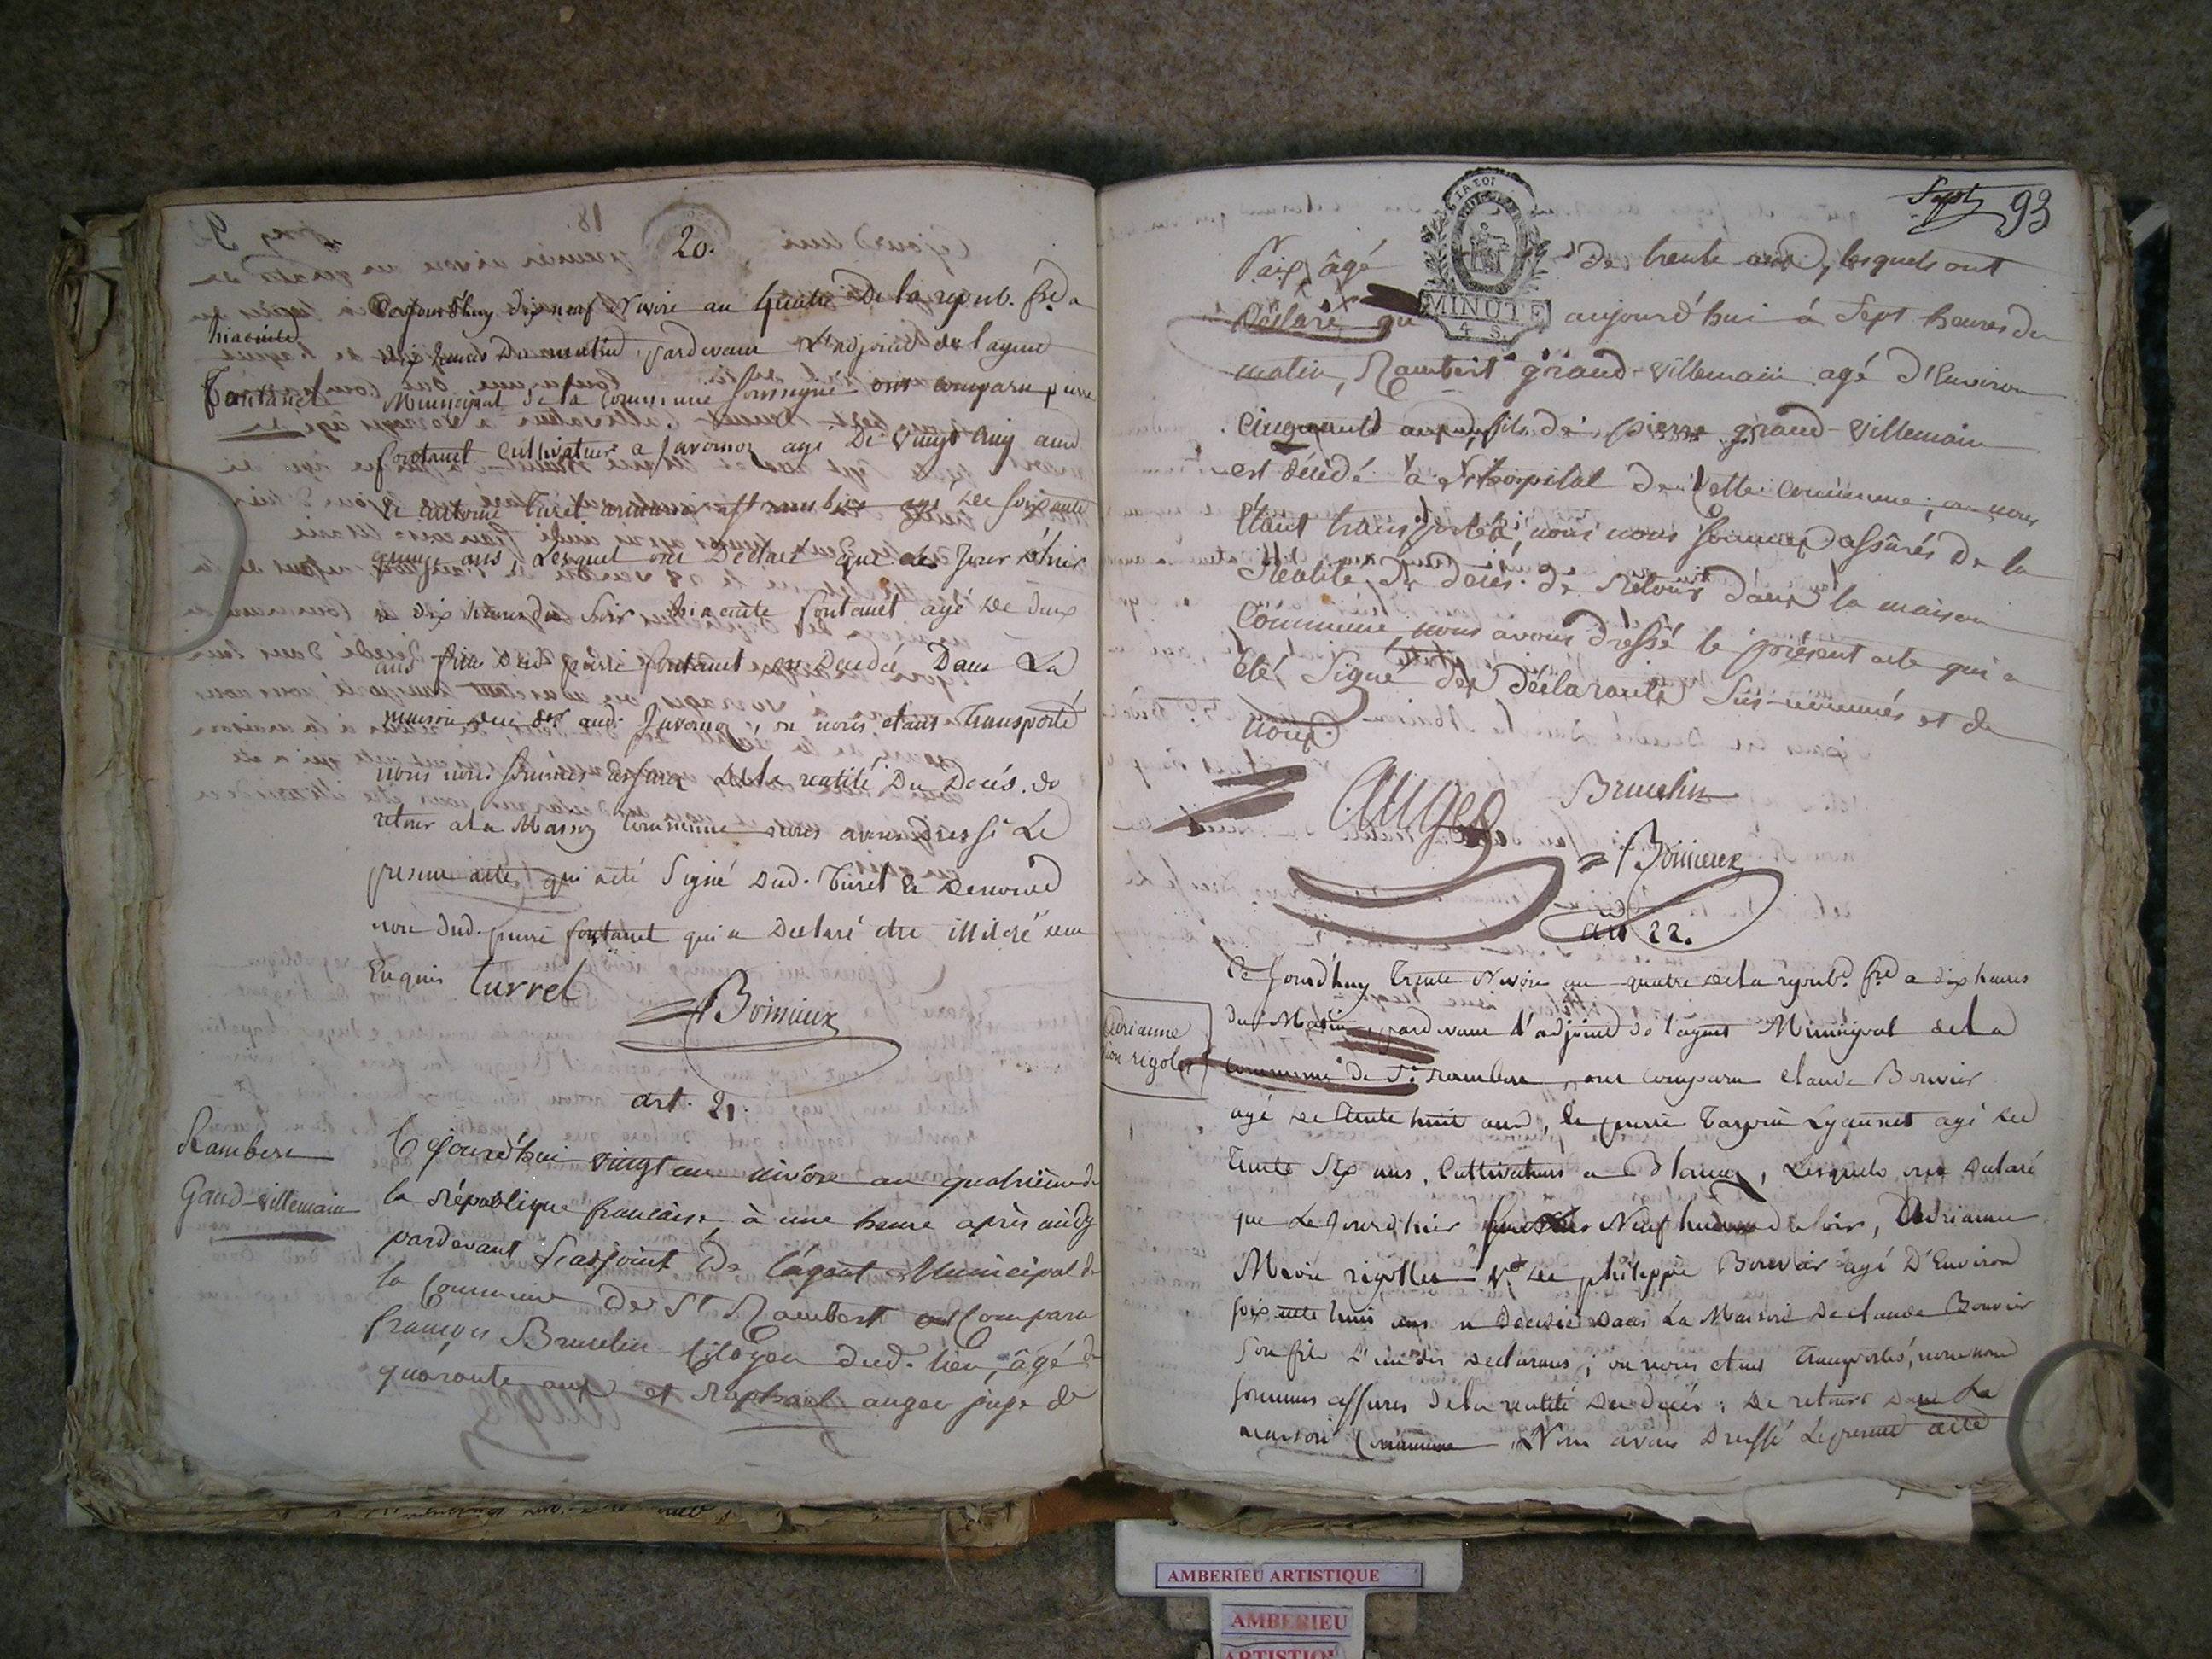 20.
hiacinte
fontanet
Cejourd'huy dix neuf Nivose an quatre De la repub. fse a
dix heures Du matin, pardevant L'adjoint de l'agent
Municipal de la Commune soussigné ont comparu pierre
fontanet cultivateur a Javornoz agé De vingt cinq ans
et antoine Turet agé De soixante
quinze ans, Lesquels ont Declaré que le Jour d'hier
a dix heures du soir hiacinte fontanet agé De deux
ans fils dud. pierre fontanet est Decedée Dans La
maison aud. Javornoz, ou nous etans Transporté
nous nous sommes assuré De la realité Du Decés. de
retour a la Maison Commune nous avons dressé Le
present acte, qui a eté Signé dud. Turet &
non dud. pierre fontanet qui a Declaré etre illitéré de ce
Enquis turret
Bonnieux
art. 21.
Rambert
Gand-villemain
Cejourd'hui vingt un nivôse an quatrième de
la République francaise, à une heure après midy
pardevant l'adjoint de l'agent Municipal de
la Commune de St Rambert ont comparu
françois Brunelin Citoyen dud. lieu, âgé de
quarante ans et Raphael auger juge de
Sept 93
LA LOI
MINUTE
4 S.
Paix, âgé de trente ans, lesquels ont
Déclaré que aujourd'hui à Sept heures du
matin, Rambert grand-villemain agé d'Environ
Cinquante ans, fils de pierre grand-villemain
est décédé à l'hospital De Cette Commune; ou nous
étant transportés, nous nous sommes assurés De la
Réalité du décès. de Retour dans la maison
Commune nous avons dressé le présent acte qui a
été Signé des déclarants Sus-nommés et de
nous.
Auger Brunelin
Bonnieux
art 22.
Adrianne
rigolet
Ce Jourd'huy Trente Nivose an quatre de la repub. fse a dix heures
du Matin, pardevant L'adjoint de l'agent Municipal de La
Commune de St. Rambert, ont comparu claude Bouvier
agé de trente huit ans, & pierre Lyannet agé de
Trente Six ans, Cultivateurs a Blanaz, Lesquels ont Declaré
que Le Jourd'hier Neuf heures du soir, Adrianne
Marie rigollet Ve de philippe Bouvier agé D'Environ
soixante huit ans est Decedée Dans La Maison De claude Bouvier
son fils L'un des declarans; ou nous etant Transportés, nous nous
sommes assurés de la realité Du decés; De retour Dans La
maison Commune, Nous avons Dressé Le present acte
AMBERIEU ARTISTIQUE
AMBERIEU
ARTISTIQUE